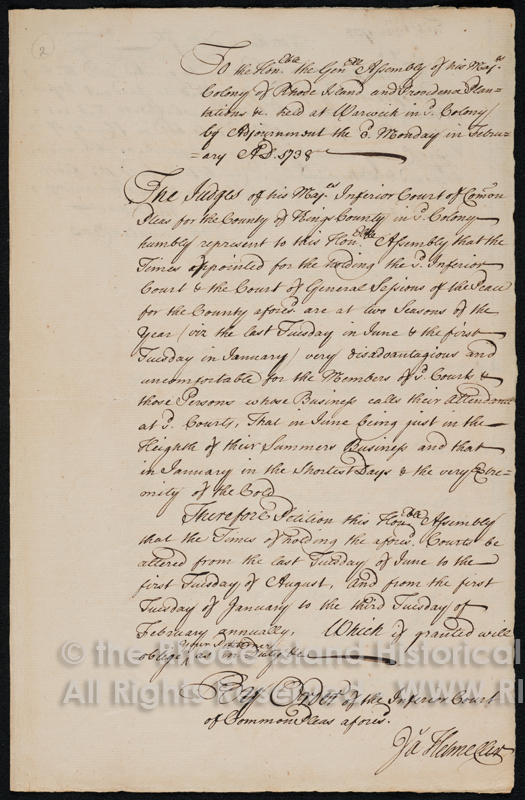 2
To the Hon.ble the Gen.ll Assembly of his Maj.s
Colony of Rhode Island and Providence Plan-
tations &c. held at Warwick in s.d Colony
by Adjournment the 3.d Monday in Febru-
=ary A.D. 1738
The Judges of his Maj.s Inferior Court of Com̄on
Pleas for the County of Kings County in s.d Colony
humbly represent to this Hon.ble Assembly that the
Times appointed for the holding the s.d Inferior
Court & the Court of General Sessions of the Peace
for the County afores.d are at two Seasons of the
Year (viz the last Tuesday in June & the first
Tuesday in January) very disadvantagious and
uncomfortable for the Members of s.d Courts &
those Persons whose Business calls their Attendance
at s.d Courts, That in June being just in the
Heighth of their Summers Business and that
in January in the Shortest Days & the very Extre-
mity of the Cold
Therefore Petition this Hon.ble Assembly
that the Times of holding the afores.d Courts be
altered from the last Tuesday of June to the
first Tuesday of August, and from the first
Tuesday of January to the third Tuesday of
February annually, Which if granted will
oblige, as in Duty &c
By Order of the Inferior Court
of Common Pleas afores.d
Ja Helme Cler
© the Rhode Island Historical
All Rights Reserved WWW.RI